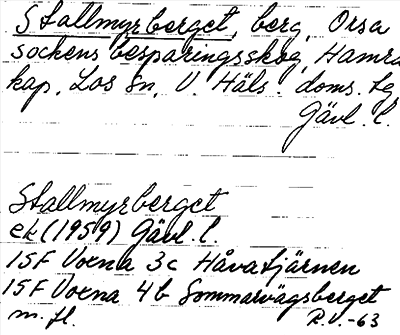 Stallmyrberget, berg, Orsa
sockens besparingsskog, Hamra
kap. Los sn, V. Häls. doms. tg
Gävl. l.
Stallmyrberget
ek (1959) Gävl. l.
15F Voxna 3c Håvatjärnen
15F Voxna 4b Sommarvägsberget
m. fl.
R.V.-63